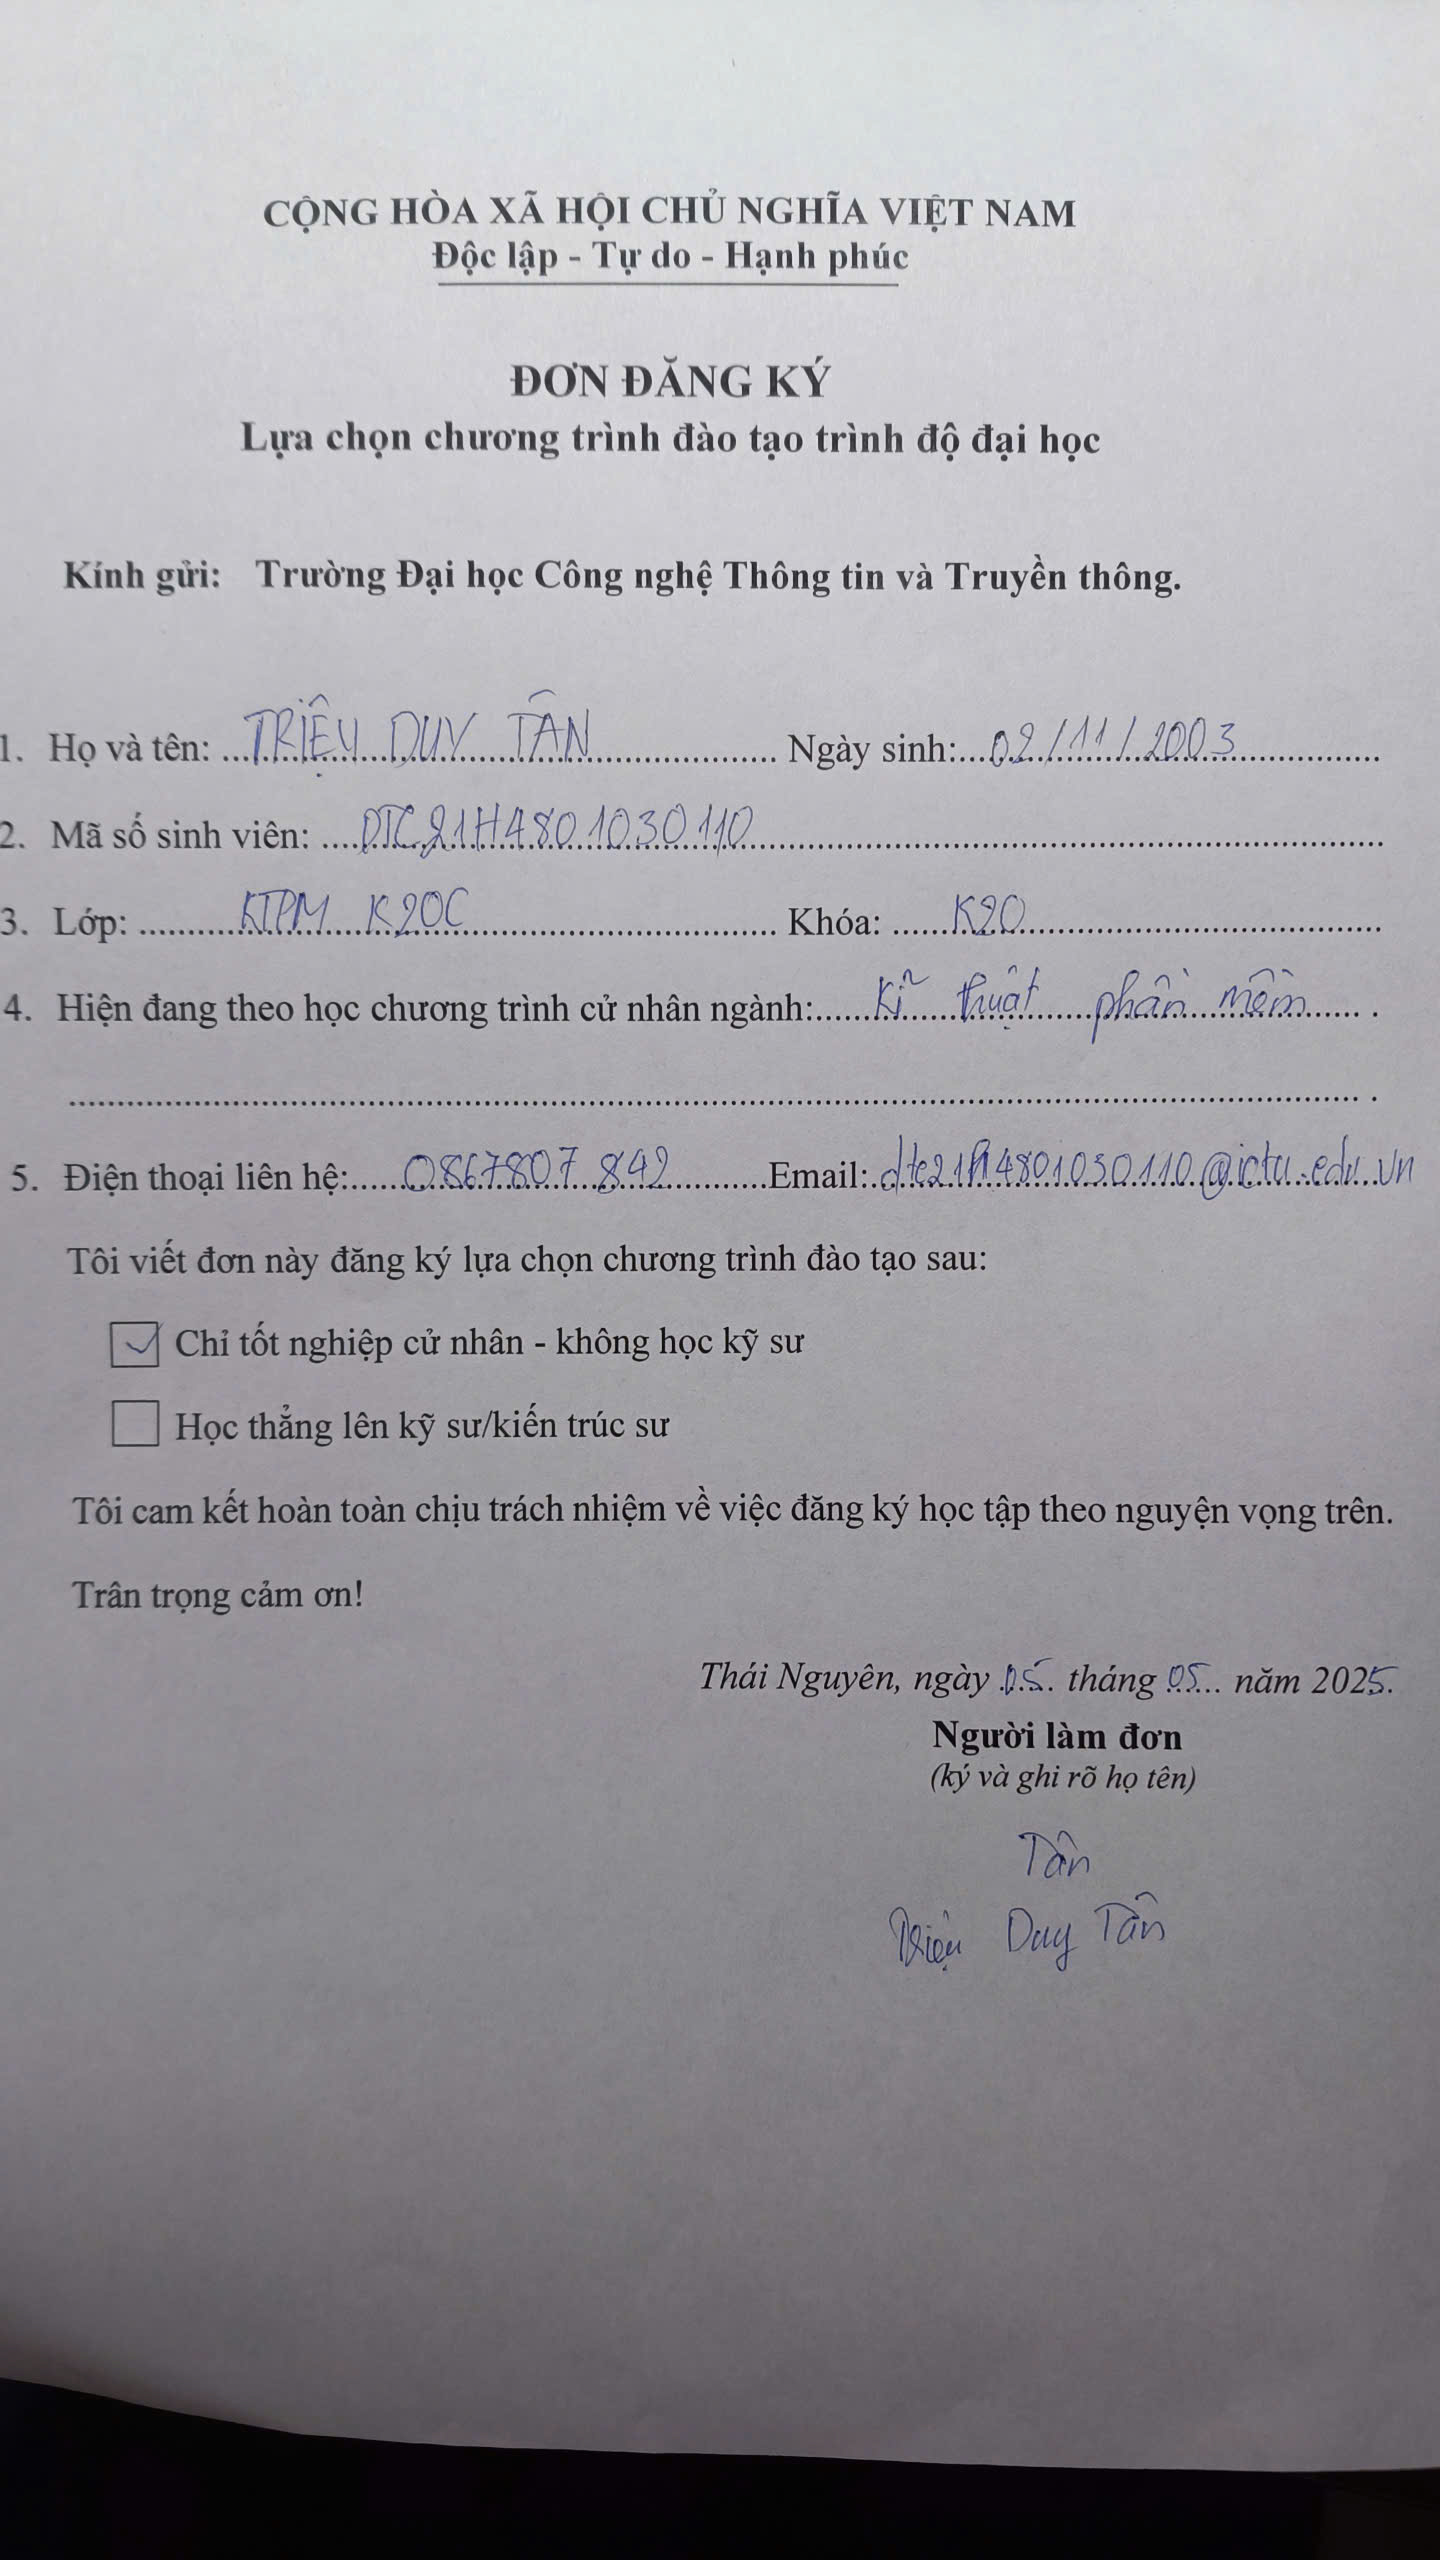 CỘNG HÒA XÃ HỘI CHỦ NGHĨA VIỆT NAM
Độc lập - Tự do - Hạnh phúc
ĐƠN ĐĂNG KÝ
Lựa chọn chương trình đào tạo trình độ đại học
Kính gửi: Trường Đại học Công nghệ Thông tin và Truyền thông.
1. Họ và tên: TRIỆU DUY TÂN Ngày sinh: 02/11/2003
2. Mã số sinh viên: DTC21H4801030110
3. Lớp: KTPM K20C Khóa: K20
4. Hiện đang theo học chương trình cử nhân ngành: Kĩ thuật phần mềm
5. Điện thoại liên hệ: 0867807842 Email: dtc21h4801030110@ictu.edu.vn
Tôi viết đơn này đăng ký lựa chọn chương trình đào tạo sau:
☑ Chỉ tốt nghiệp cử nhân - không học kỹ sư
☐ Học thẳng lên kỹ sư/kiến trúc sư
Tôi cam kết hoàn toàn chịu trách nhiệm về việc đăng ký học tập theo nguyện vọng trên.
Trân trọng cảm ơn!
Thái Nguyên, ngày 05 tháng 05 năm 2025.
Người làm đơn
(ký và ghi rõ họ tên)
Tân
Triệu Duy Tân